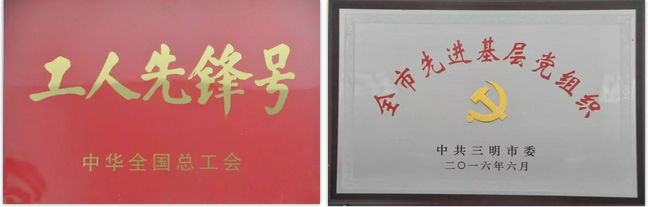 工人先锋号
中华全国总工会
全市先进基层党组织
中共三明市委
二〇一六年六月